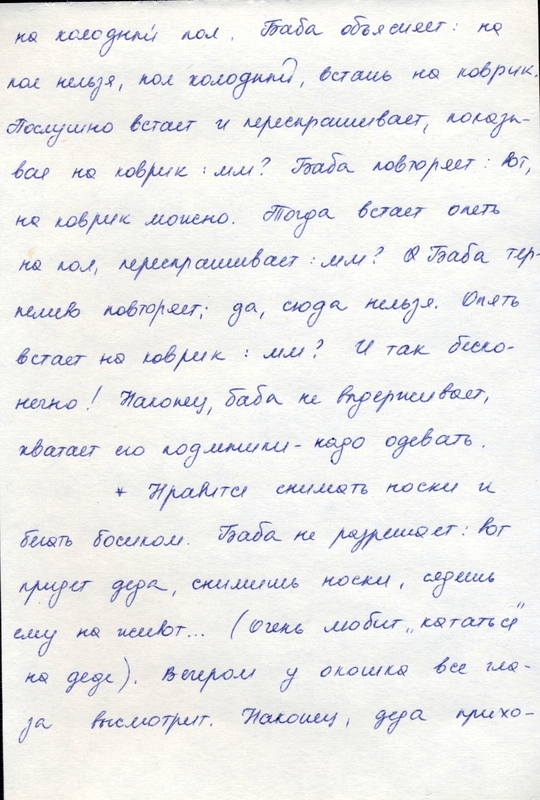 на холодный пол. Баба объясняет: на
пол нельзя, пол холодный, встань на коврик.
Послушно встает и переспрашивает, показы-
вая на коврик: мм? Баба повторяет: вот,
на коврик можно. Тогда встает опять
на пол, переспрашивает: мм? А Баба тер-
пеливо повторяет: да, сюда нельзя. Опять
встает на коврик: мм? И так беско-
нечно! Наконец, баба не выдерживает,
хватает его подмышки - надо одевать.
* Нравится снимать носки и
бегать босиком. Баба не разрешает: вот
придет деда, снимешь носки, сядешь
ему на живот... (Очень любит „кататься"
на деде). Вечером у окошка все гла-
за высмотрит. Наконец, деда прихо-